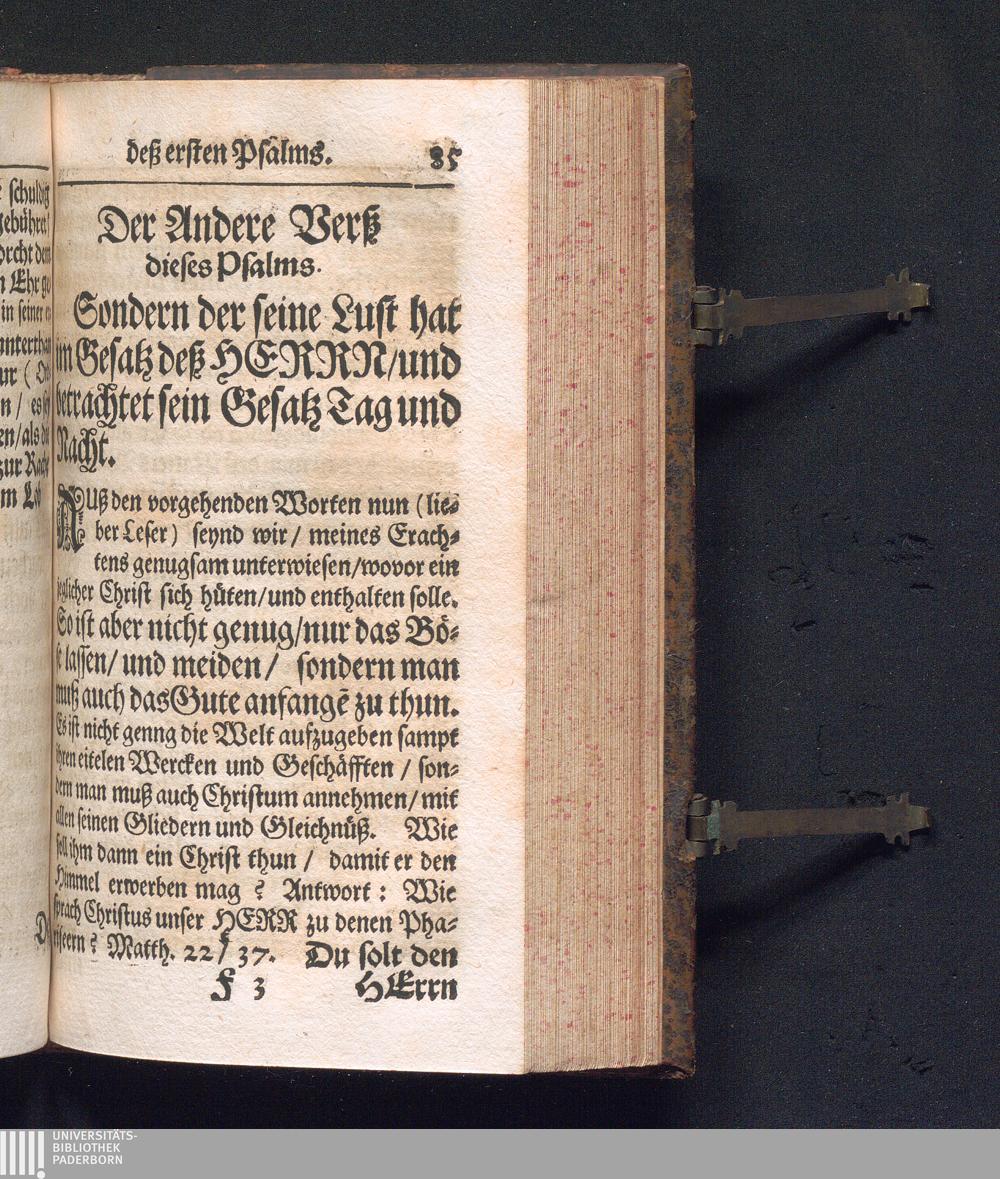 schuldig
gebühret/
n Ehr ge
in seiner
unterthan
n / es sey
en/als die
zur Rach
deß ersten Psalms. 85
Der Andere Verß
dieses Psalms.
Sondern der seine Lust hat
im Gesatz deß HERRN/und
betrachtet sein Gesatz Tag und
Nacht.
Auß den vorgehenden Worten nun (lie-
ber Leser) seynd wir / meines Erach-
tens genugsam unterwiesen/wovor ein
jeglicher Christ sich hüten/und enthalten solle.
So ist aber nicht genug/nur das Bö-
se lassen/ und meiden / sondern man
muß auch das Gute anfangẽ zu thun.
Es ist nicht genng die Welt aufzugeben sampt
ihren eitelen Wercken und Geschäfften / son-
dern man muß auch Christum annehmen/ mit
allen seinen Gliedern und Gleichnüß. Wie
soll ihm dann ein Christ thun / damit er den
Himmel erwerben mag ? Antwort : Wie
sprach Christus unser HERR zu denen Pha-
riseern ? Matth. 22/ 37. Du solt den
F 3 HErrn
UNIVERSITÄTS-
BIBLIOTHEK
PADERBORN